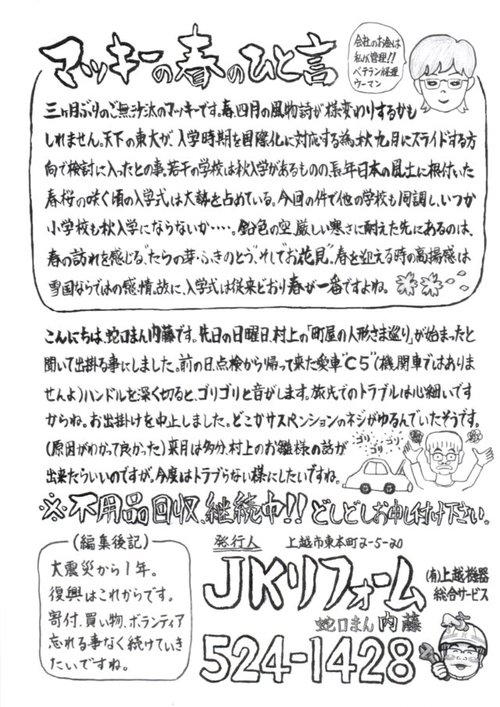 マッキーの春のひと言
会社のお金は
私が管理!!
ベテラン経理
ウーマン
三ヶ月ぶりのご無沙汰のマッキーです。春、四月の風物詩が様変わりするかも
しれません。天下の東大が、入学時期を国際化に対応する為、秋、九月にスライドする方
向で検討に入ったとの事。若干の学校は秋入学があるものの、長年日本の風土に根付いた
春、桜の咲く頃の入学式は大勢を占めている。今回の件で他の学校も同調し、いつか
小学校も秋入学にならないか・・・・。鉛色の空、厳しい寒さに耐えた先にあるのは、
春の訪れを感じる"たらの芽・ふきのとう"、そして"お花見"。春を迎える時の高揚感は
雪国ならではの感情。故に、入学式は従来どおり春が一番ですよね。
こんにちは、蛇口まん内藤です。先日の日曜日、村上の「町屋の人形さま巡り」が始まったと
聞いて出掛る事にしました。前の日、点検から帰って来た愛車"C5"(機関車ではありま
せんよ)ハンドルを深く切ると、ゴリゴリと音がします。旅先でのトラブルは心細いで
すからね。お出掛けを中止しました。どこかサスペンションのネジがゆるんでいたそうです。
(原因がわかって良かった)来月は多分、村上のお雛様の話が
出来たらいいのですが、今度はトラブらない様にしたいですね。
ゴリ ゴリ ゴリ
※不用品回収、継続中!!どしどしお申し付け下さい。
(編集後記)
大震災から1年。
復興はこれからです。
寄付、買い物、ボランティア
忘れる事なく続けていき
たいですね。
発行人 上越市東本町2-5-20
JKリフォーム
(有)上越機器
総合サービス
蛇口まん 内藤
524-1428